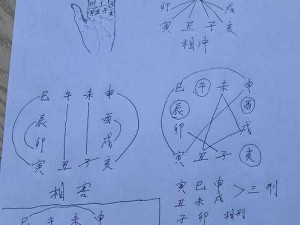 卯 寅 丑 子 亥
戌
相冲
巳 午 未 申
辰 酉
卯 戌
寅 丑 子 亥
相害
巳 午 未 申
辰 酉
卯 戌
寅 丑 子 亥
寅 巳 申
丑 未 戌 > 三刑
子 卯 相刑
巳 午 未 申